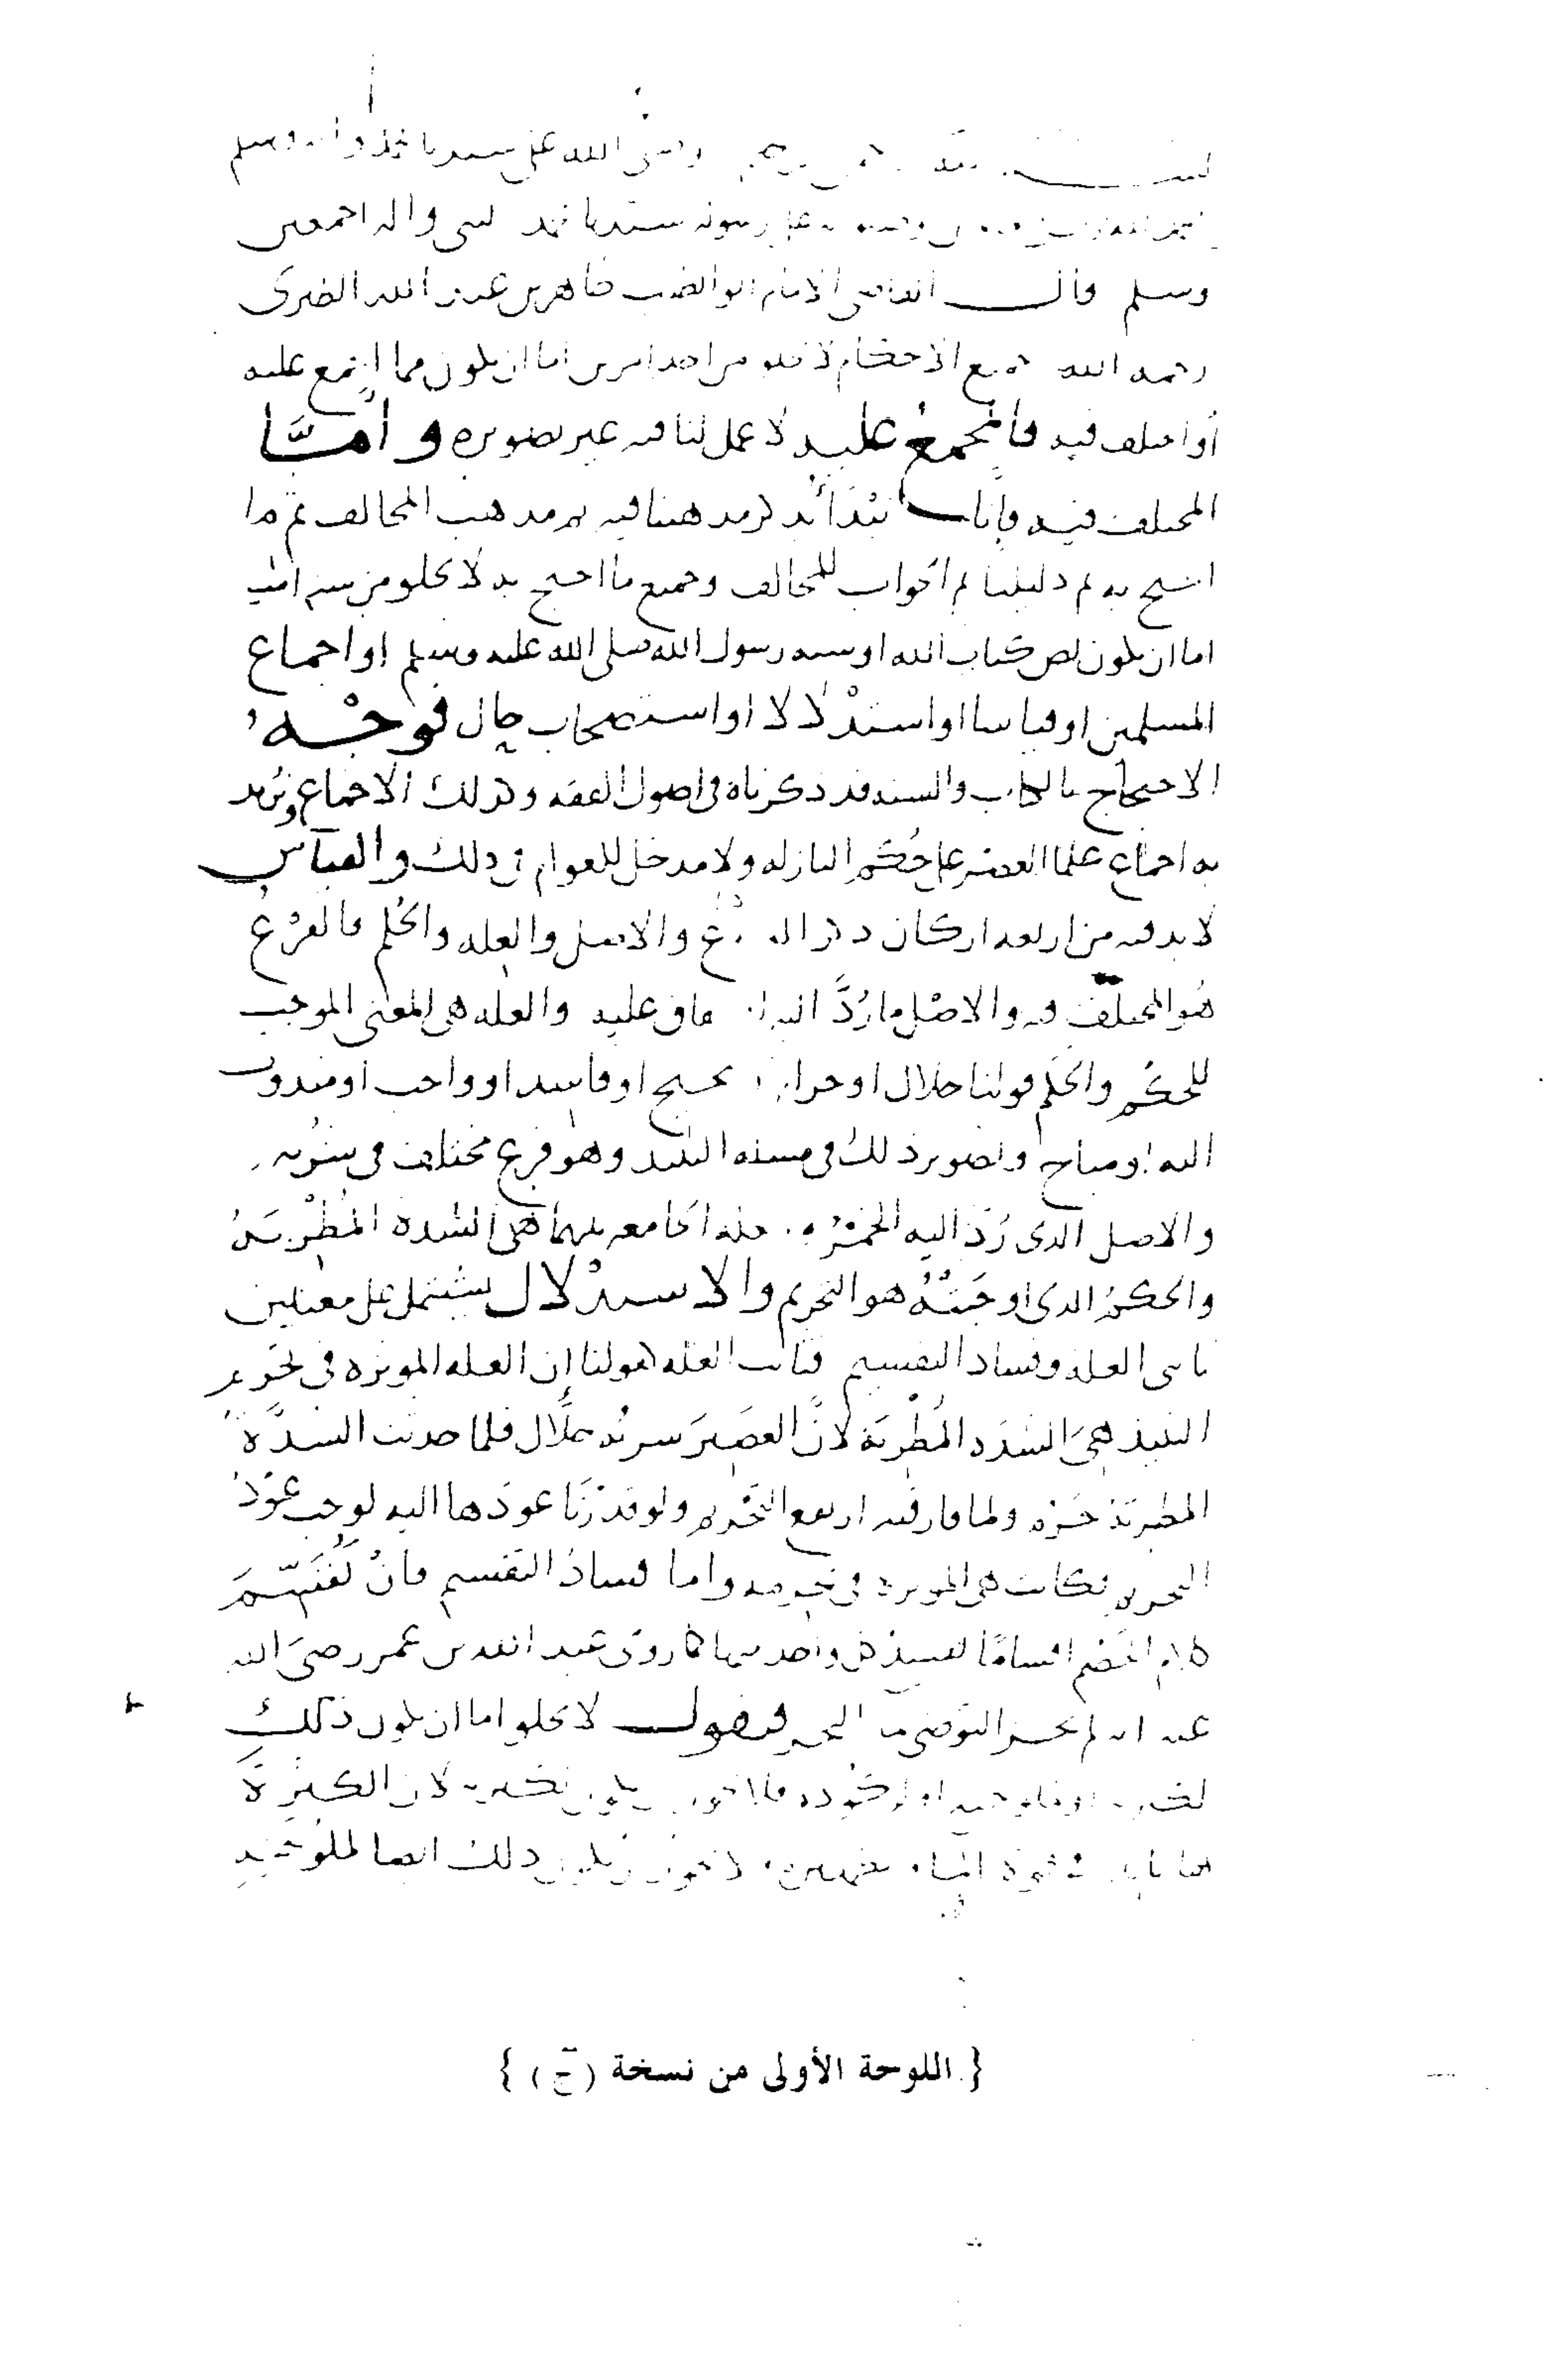 الله على سيدنا محمد واله وسلم
سيدنا محمد النبي واله اجمعين
وسلم قال القاضي الامام ابو الطيب طاهر بن عبد الله الطبري
رحمه الله جميع الاحكام لا تخلو من احد امرين اما ان يكون مما اجمع عليه
او اختلف فيه فالمجمع عليه لا عمل لنا فيه غير تصويره واما
المختلف فيه فانا نبتدئ بذكر مذهبنا فيه ثم مذهب المخالف ثم ما
احتج به ثم دليلنا ثم الجواب للمخالف وجميع ما احتج به لا يخلو من ستة اشيا
اما ان يكون نص كتاب الله او سنة رسول الله صلى الله عليه وسلم او اجماع
المسلمين او قياسا او استدلالا او استصحاب حال فوجه
الاحتجاج بالكتاب والسنة قد ذكرناه في اصول الفقه وكذلك الاجماع ونريد
به اجماع علما العصر على حكم النازلة ولا مدخل للعوام في ذلك والقياس
لا بد فيه من اربعة اركان والاصل والعلة والحكم فالفرع
هو المختلف فيه والاصل ما رد اليه عليه والعلة هي المعنى الموجب
للحكم والحكم قولنا حلال او حرام صحيح او فاسد او واجب او مندوب
اليه او مباح وتصوير ذلك في مسئلة النبيذ وهو فرع مختلف في شربه
والاصل الذي رد اليه الخمر الجامعة بينهما هي الشدة المطربة
والحكم الذي اوجبته هو التحريم والاستدلال يشتمل على معنيين
العلة وفساد التقسيم العلة قولنا ان العلة الموثرة في تحريم
النبيذ هي الشدة المطربة لان العصير شربه حلال فلما حدثت الشدة
المطربة حرم ولما فارقته ارتفع التحريم ولو قدرنا عودها اليه لوجب عود
التحريم فكانت هي الموثرة في تحريمه واما فساد التقسيم فان نقسم
كلام الخصم اقساما واحد منها كما روي عبد الله بن عمر رضي الله
عنه انه لم التوضي بما البحر فنقول لا يخلو اما ان يكون ذلك
لان الكثرة
ذلك ايضا لملوحته
{ اللوحة الأولى من نسخة (ج) }